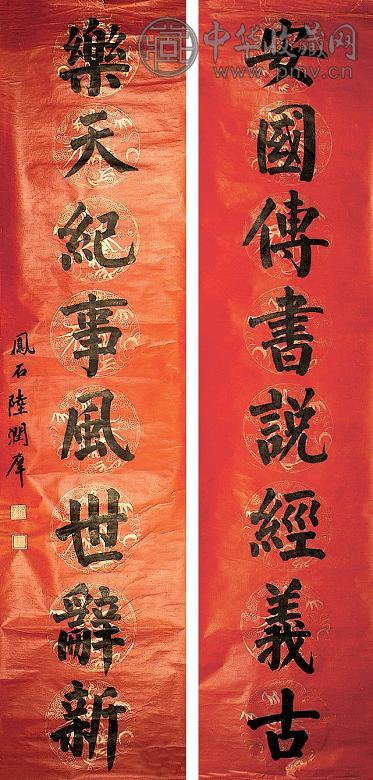 安國傳書說經義古
樂天紀事風世辭新
鳳石陸潤庠
中华收藏网
www.pmv.cn